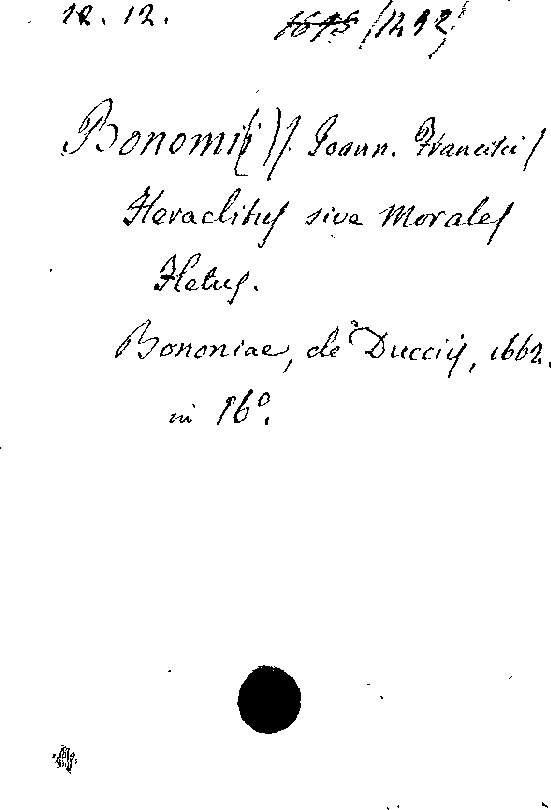 12. 12.
1698 (1292)
Bonomi(i)s. Joann. Francisci
Heraclitus sive Morales
Fletus.
Bononiae, de Ducciis, 1662.
in 16º.